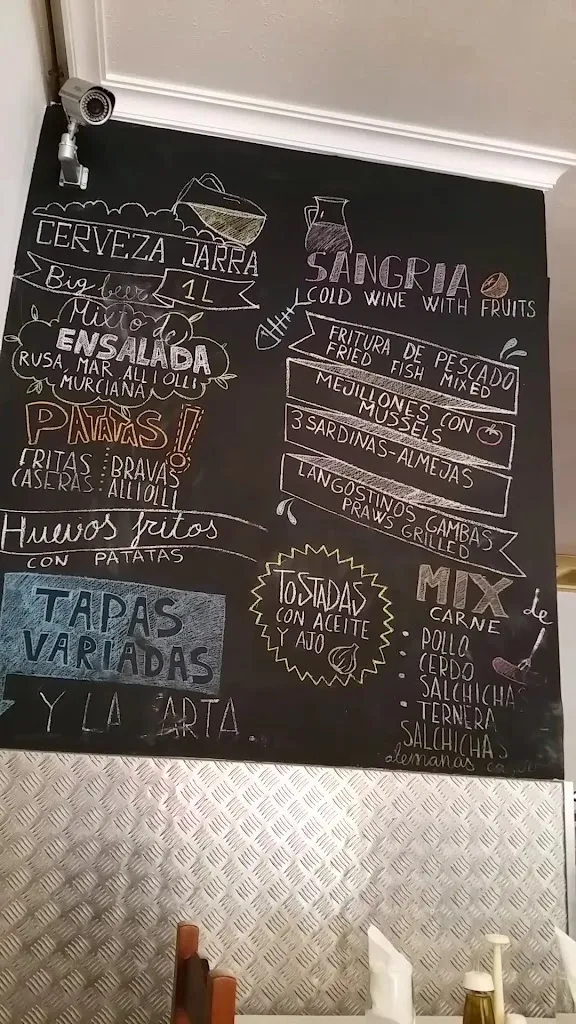 CERVEZA JARRA
Big beer 1L
Mixto de
ENSALADA
RUSA, MAR ALLIOLLI
MURCIANA
PATATAS!
FRITAS BRAVAS
CASERAS ALLIOLLI
Huevos fritos
CON PATATAS
TAPAS
VARIADAS
Y LA ARTA.
SANGRIA
COLD WINE WITH FRUITS
FRITURA DE PESCADO
FRIED FISH MIXED
MEJILLONES CON
MUSSELS
3 SARDINAS-ALMEJAS
LANGOSTINOS GAMBAS
PRAWS GRILLED
TOSTADAS
CON ACEITE
Y AJO
MIX de
CARNE
• POLLO
CERDO
• SALCHICHAS
• TERNERA
SALCHICHAS
alemanas